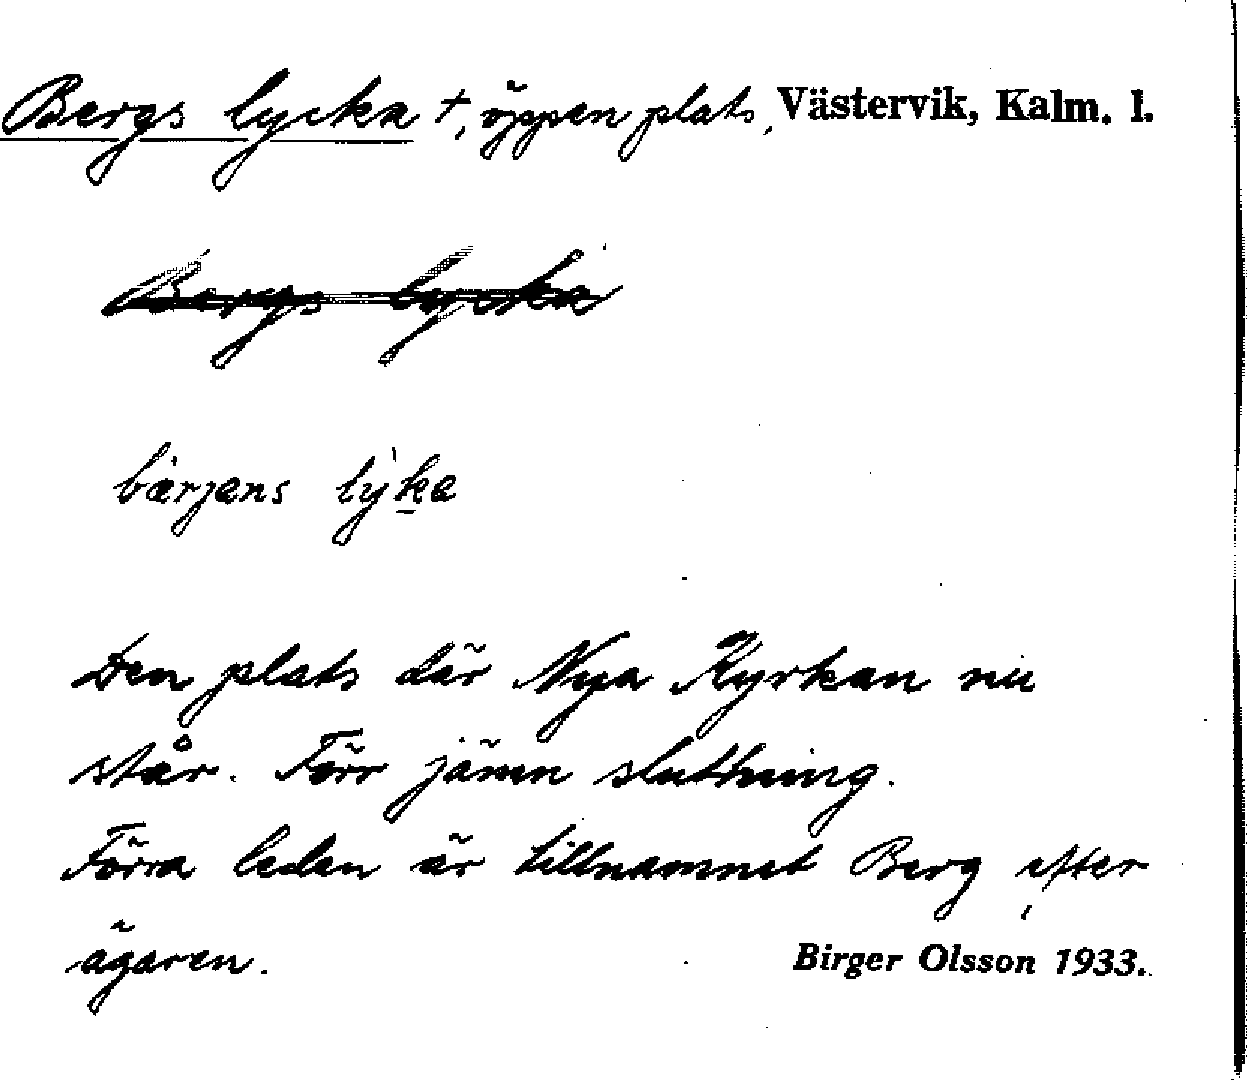 Bergs lycka +, öppen plats, Västervik, Kalm. l.
Bergs lycka
bärjens lyka
Den plats där Nya Kyrkan nu
står. Förr jämn sluttning.
Förra leden är tillnamnet Berg efter
ägaren.
Birger Olsson 1933.